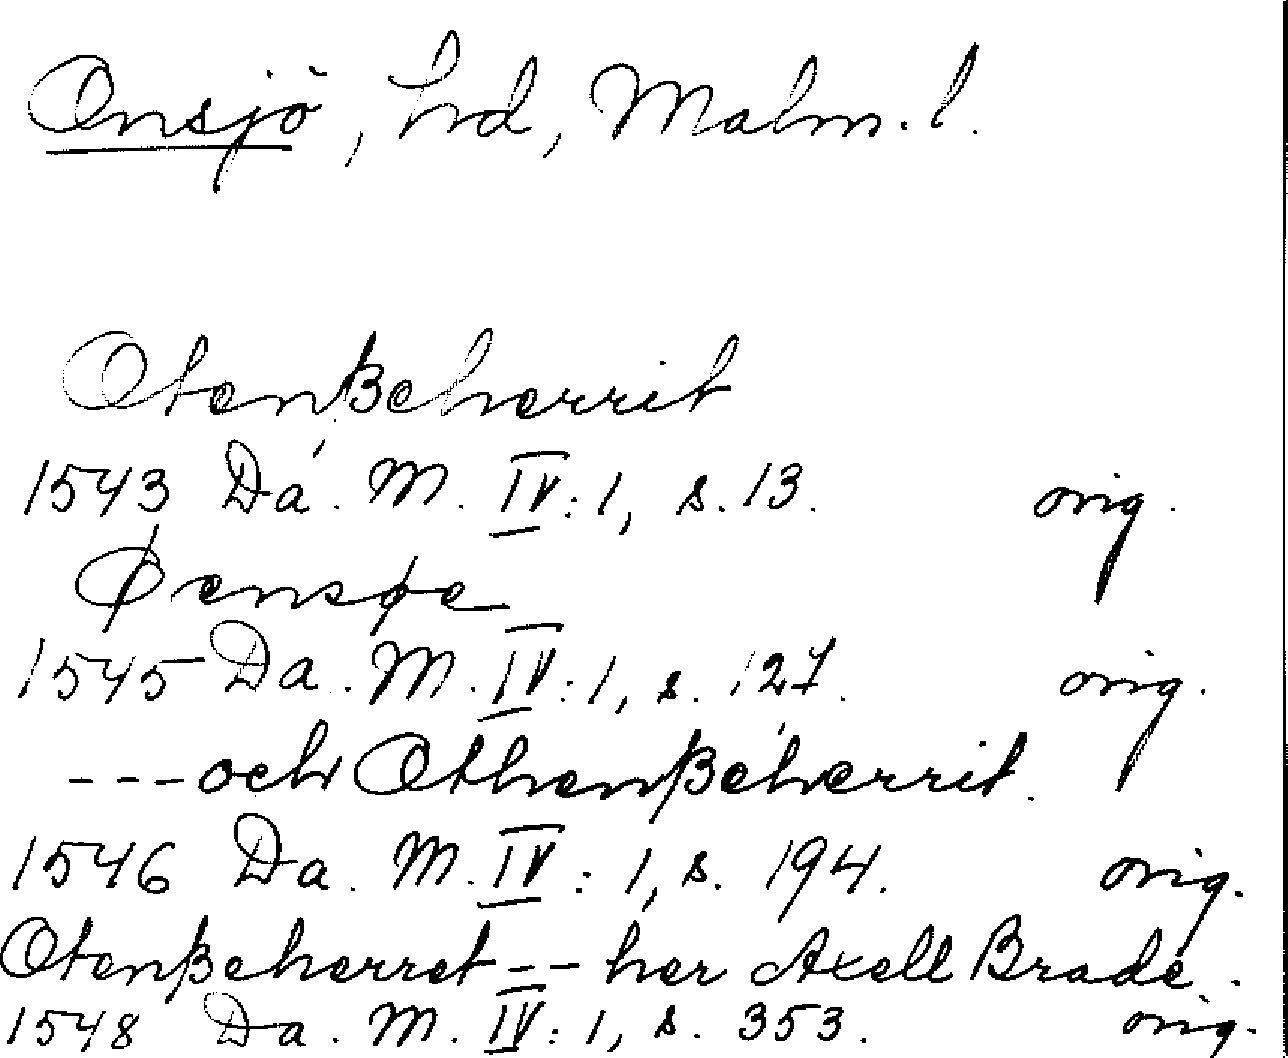 Onsjö, hrd, Malm. l.
Otenßeherrit
1543 Da. M. IV:1, s. 13. orig.
Øensøe
1545 Da. M. IV:1, s. 127. orig.
---och Othenßeherrit.
1546 Da. M. IV:1, s. 194. orig.
Otenßeherret --- her Axell Brade.
1548 Da. M. IV:1, s. 353. orig.